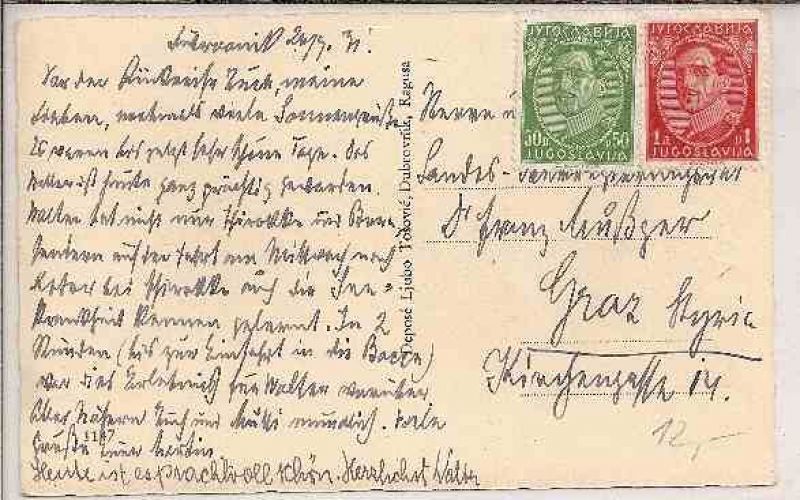 Dubrovnik 24/9. 31.
Vor der Rückreise Euch, meine
Lieben, nochmals viele Sonnengrüße.
Es waren bis jetzt sehr schöne Tage. Das
Wetter ist heute ganz prächtig geworden.
Walter hat nicht nur Schirokko und Bora,
sondern auf der Fahrt am Mittwoch nach
bei Schirokko auch die See-
krankheit kennen gelernt. In 2
Stunden (bis zur Einfahrt in die Bocche)
war das Erlebnis für Walter vorüber.
Alles Nähere Euch und Mutti mündlich. Viele
Grüße Euer
Heute ist es prachtvoll schön. Herzlichst Walter
1187
Deposé Ljubo Tošović, Dubrovnik, Ragusa
ЈУГОСЛАВИЈА
50 50
JUGOSLAVIJA
ЈУГОСЛАВИЈА
1 1
JUGOSLAVIJA
Herrn
Landes-
Dr Franz Mußger
Graz Styria
Kirchengasse 14.
12,-